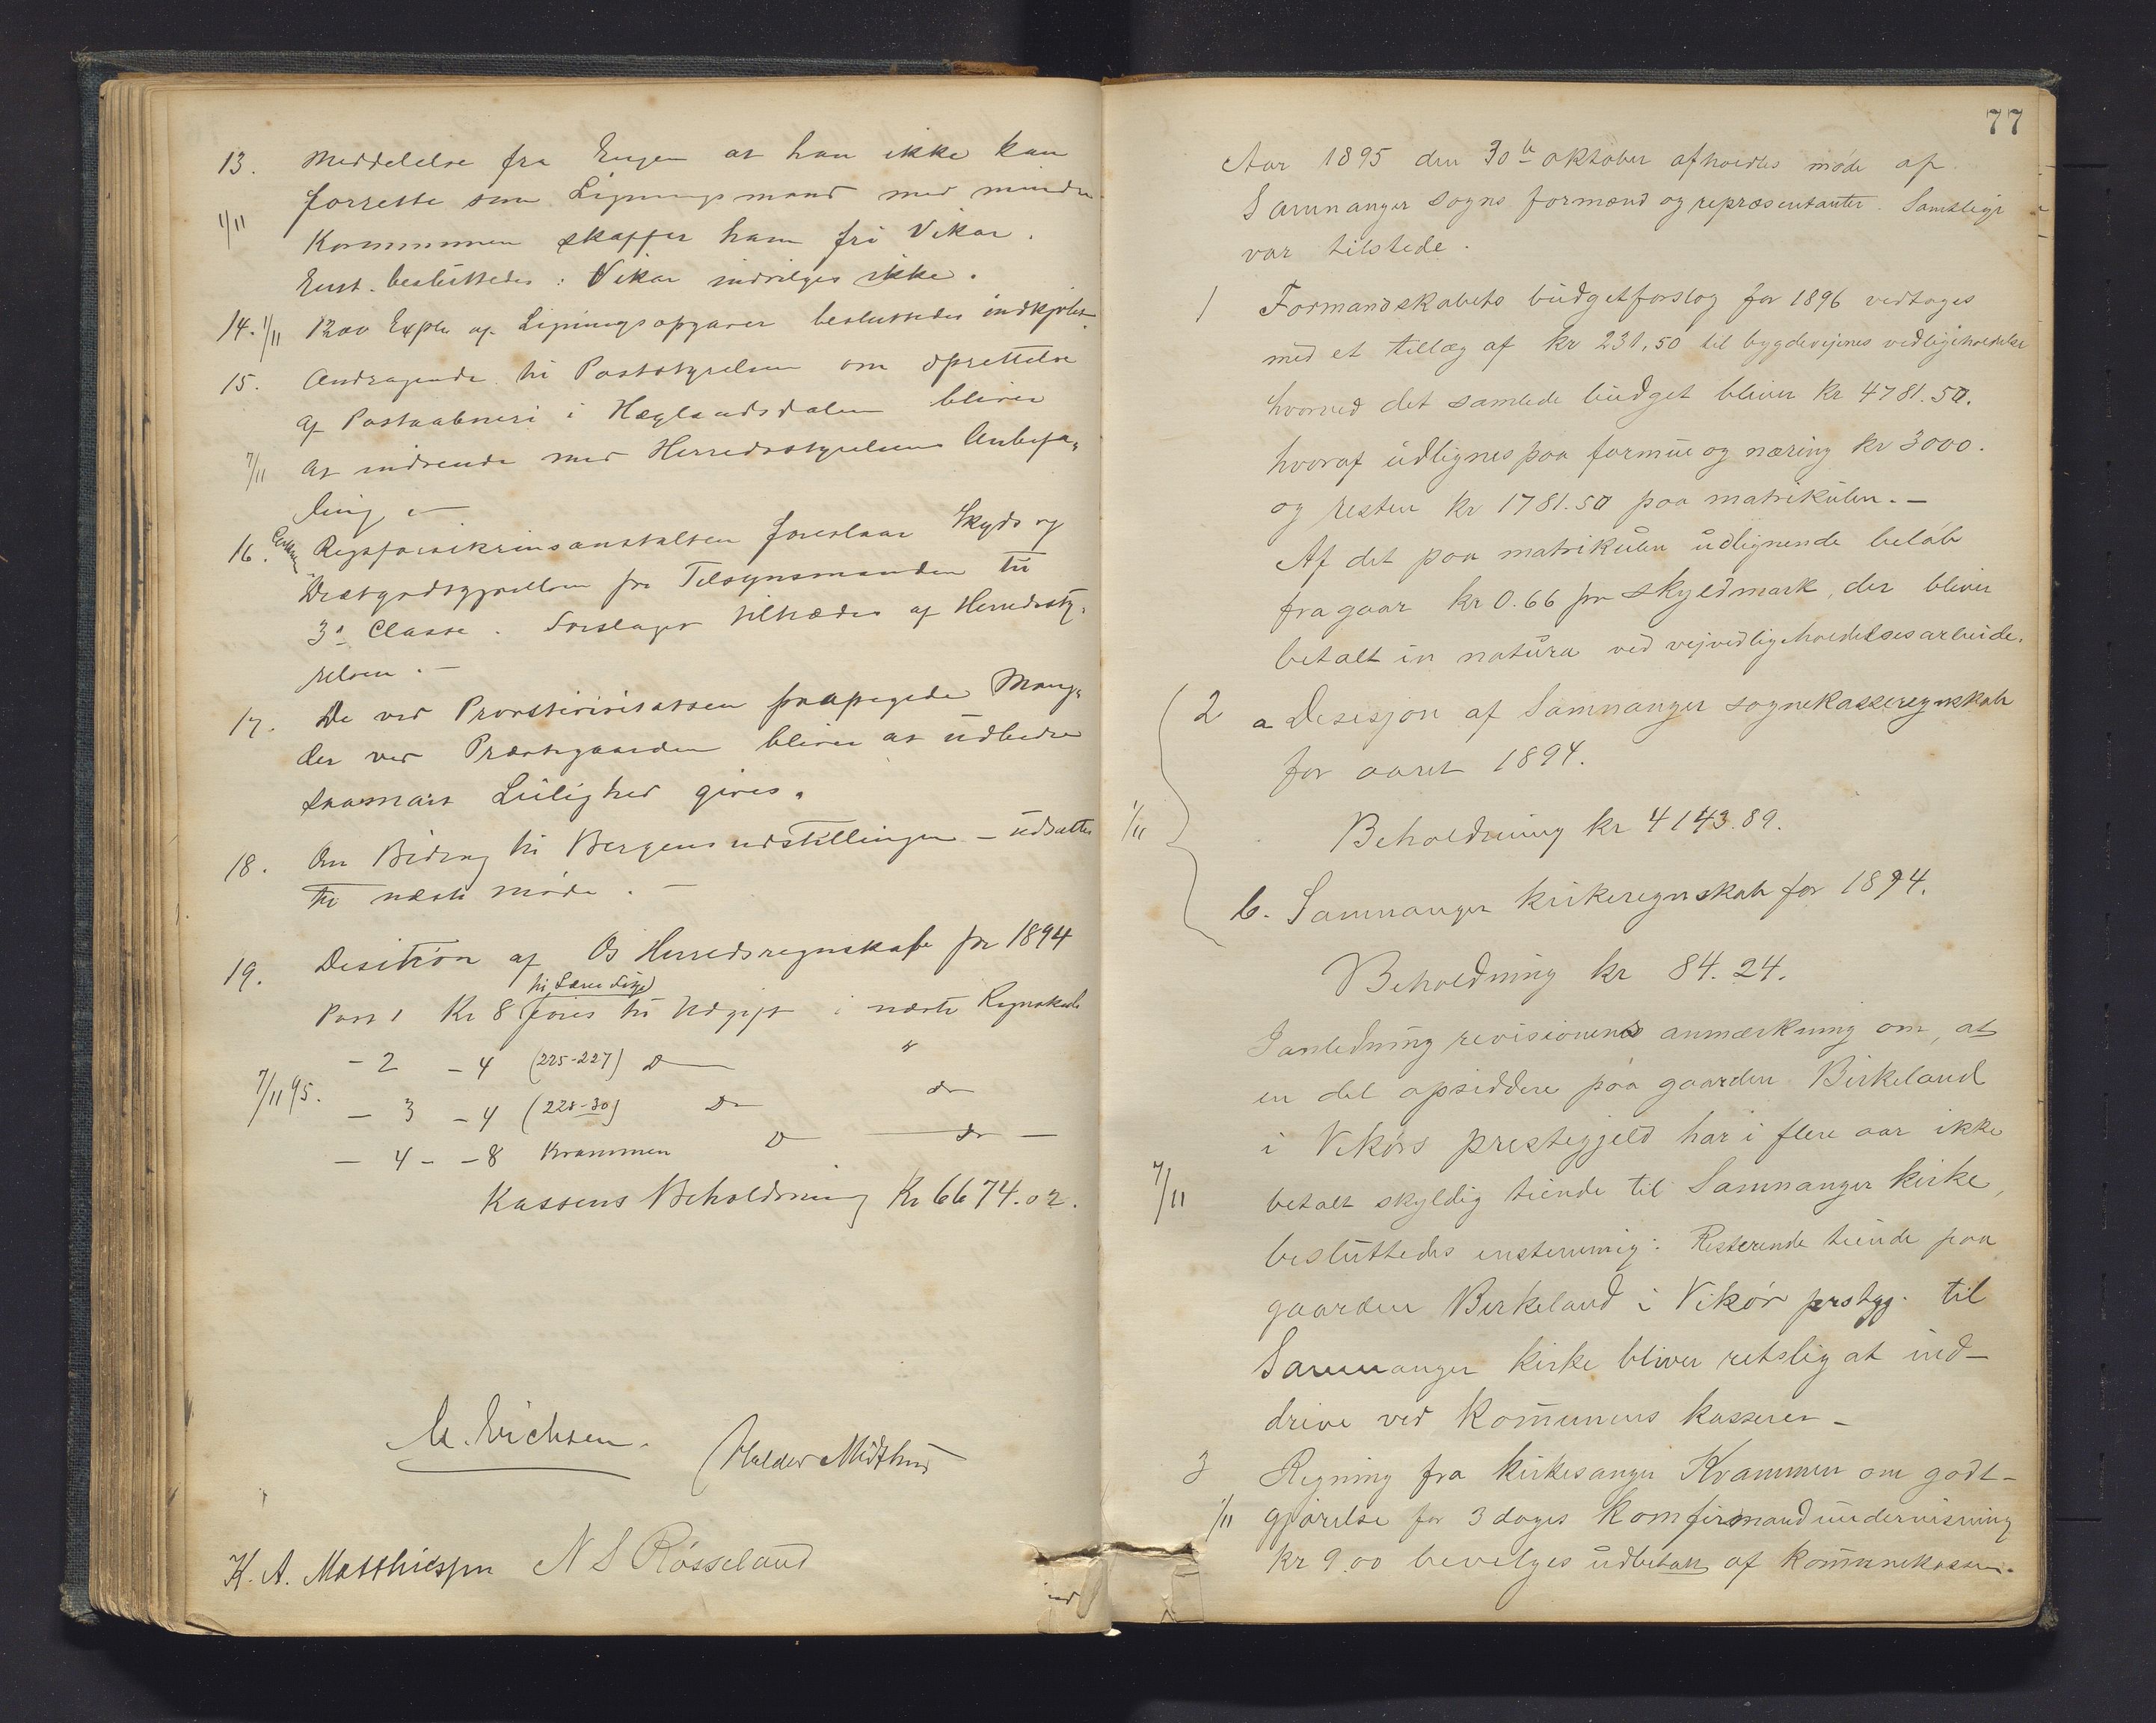 13. Meddelelse fra Engen at han ikke kan
forrette som Ligningsmand med mindre
1/11 Kommunen skaffer ham fri Vikar.
Enst. besluttedes: Vikar indvilges ikke.
14. 1/11 1200 Expl. af Ligningsopgaver besluttedes indkjøbt.
15. Andragende til Poststyrelsen om oprettelse
af Postaabneri i Hæglandsdalen bliver
7/11 at indsende med Herredsstyrelsens Anbefa-
ling.
16. Rigsforsikrinsanstalten foreslaar Skyds og
Diætgodtgjørelsen for Tilsynsmanden til
3die Classe. Forslaget tiltrædes af Herredssty-
relsen.
17. De ved Provstivisitatsen paapegede Mang-
ler ved Præstegaarden bliver at udbedre
saasnart Leilighed gives.
18. Om Bidrag til Bergensudstillingen – udsattes
til næste møde. –
19. Desition af Os Herredsregnskab for 1894
til Lærer
Post 1 Kr 8 føres til Udgift i næste Regnskab
– 2 – 4 (225-227) Do "
7/11 95.
– 3 – 4 (228-30) Do do
– 4 – – 8 Krammen Do do –
Kassens Beholdning Kr 6674.02.
Erichsen.
Halder Midthus
K. A. Matthiessen N S Røsseland
77
Aar 1895 den 30te oktober afholdtes møde af
Samnanger sogns formænd og repræsentanter. Samtlige
var tilstede.
1 Formandskabets budgetforslag for 1896 vedtoges
med et tillæg af kr 231,50 til bygdevejenes vedligeholdelse
hvorved det samlede budget bliver kr 4781.50.
hvoraf udlignes paa formue og næring kr 3000.
og resten kr 1781.50 paa matrikulen. –
Af det paa matrikulen udlignende beløb
fragaar kr 0.66 pr skyldmark, der bliver
betalt in natura ved vejvedligeholdelsesarbeide.
2 a Desisjon af Samnanger sognekasseregnskab
for aaret 1894.
1/11 Beholdning kr 4143.89.
b. Samnanger kirkeregnskab for 1894.
Beholdning kr 84.24.
I anledning revisionens anmærkning om, at
en del opsiddere paa gaarden Birkeland
i Vikørs prestegjeld har i flere aar ikke
7/11 betalt skyldig tiende til Samnanger kirke,
besluttedes enstemmig: Resterende tiende paa
gaarden Birkeland i Vikør prstgj. til
Samnanger kirke bliver retslig at ind-
drive ved Komunens kasserer –
3 Regning fra kirkesanger Kvammen om godt-
1/11 gjørelse for 3 dages komfirmandundervisning
kr 9.00 bevilges udbetalt af komunekassen.